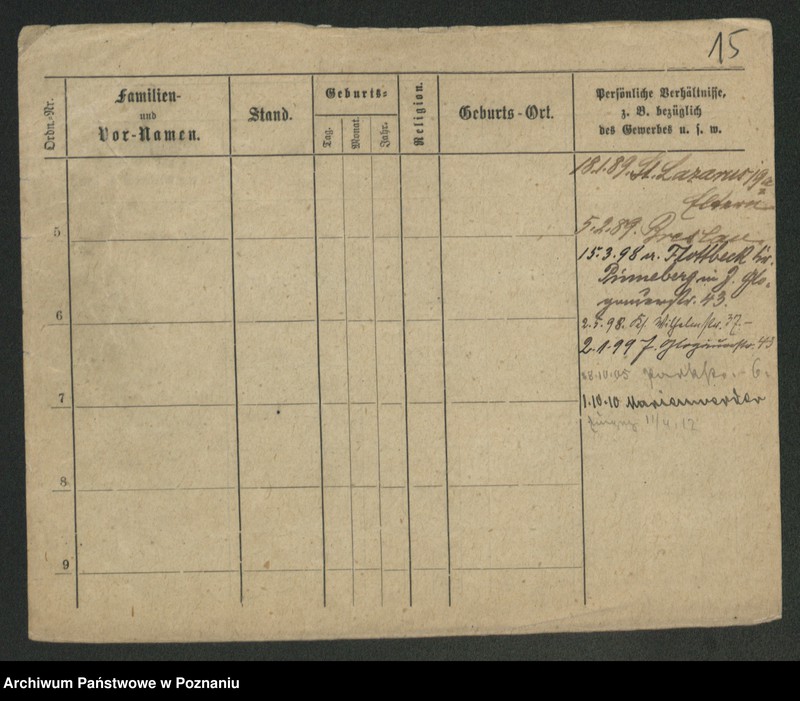 15
Ordn.-Nr.
Familien-
und
Vor-Namen.
Stand.
Geburts-
Tag.
Monat.
Jahr.
Religion.
Geburts-Ort.
Persönliche Verhältnisse,
z. B. bezüglich
des Gewerbes u. s. w.
18.1.89. St. Lazarus 19a
Eltern
5
5.2.89. Breslau
15.3.98 a. Flottbeck Kr.
Pinneberg in J. Glo-
gauerstr. 43.
6
2.5.98. Wilhelmstr. 37.
2.1.99 J. Glogauerstr. 43
28.10.05 Parkstr. 6.
7
1.10.10 Marienwerder
11/4.12
8
9
Archiwum Państwowe w Poznaniu